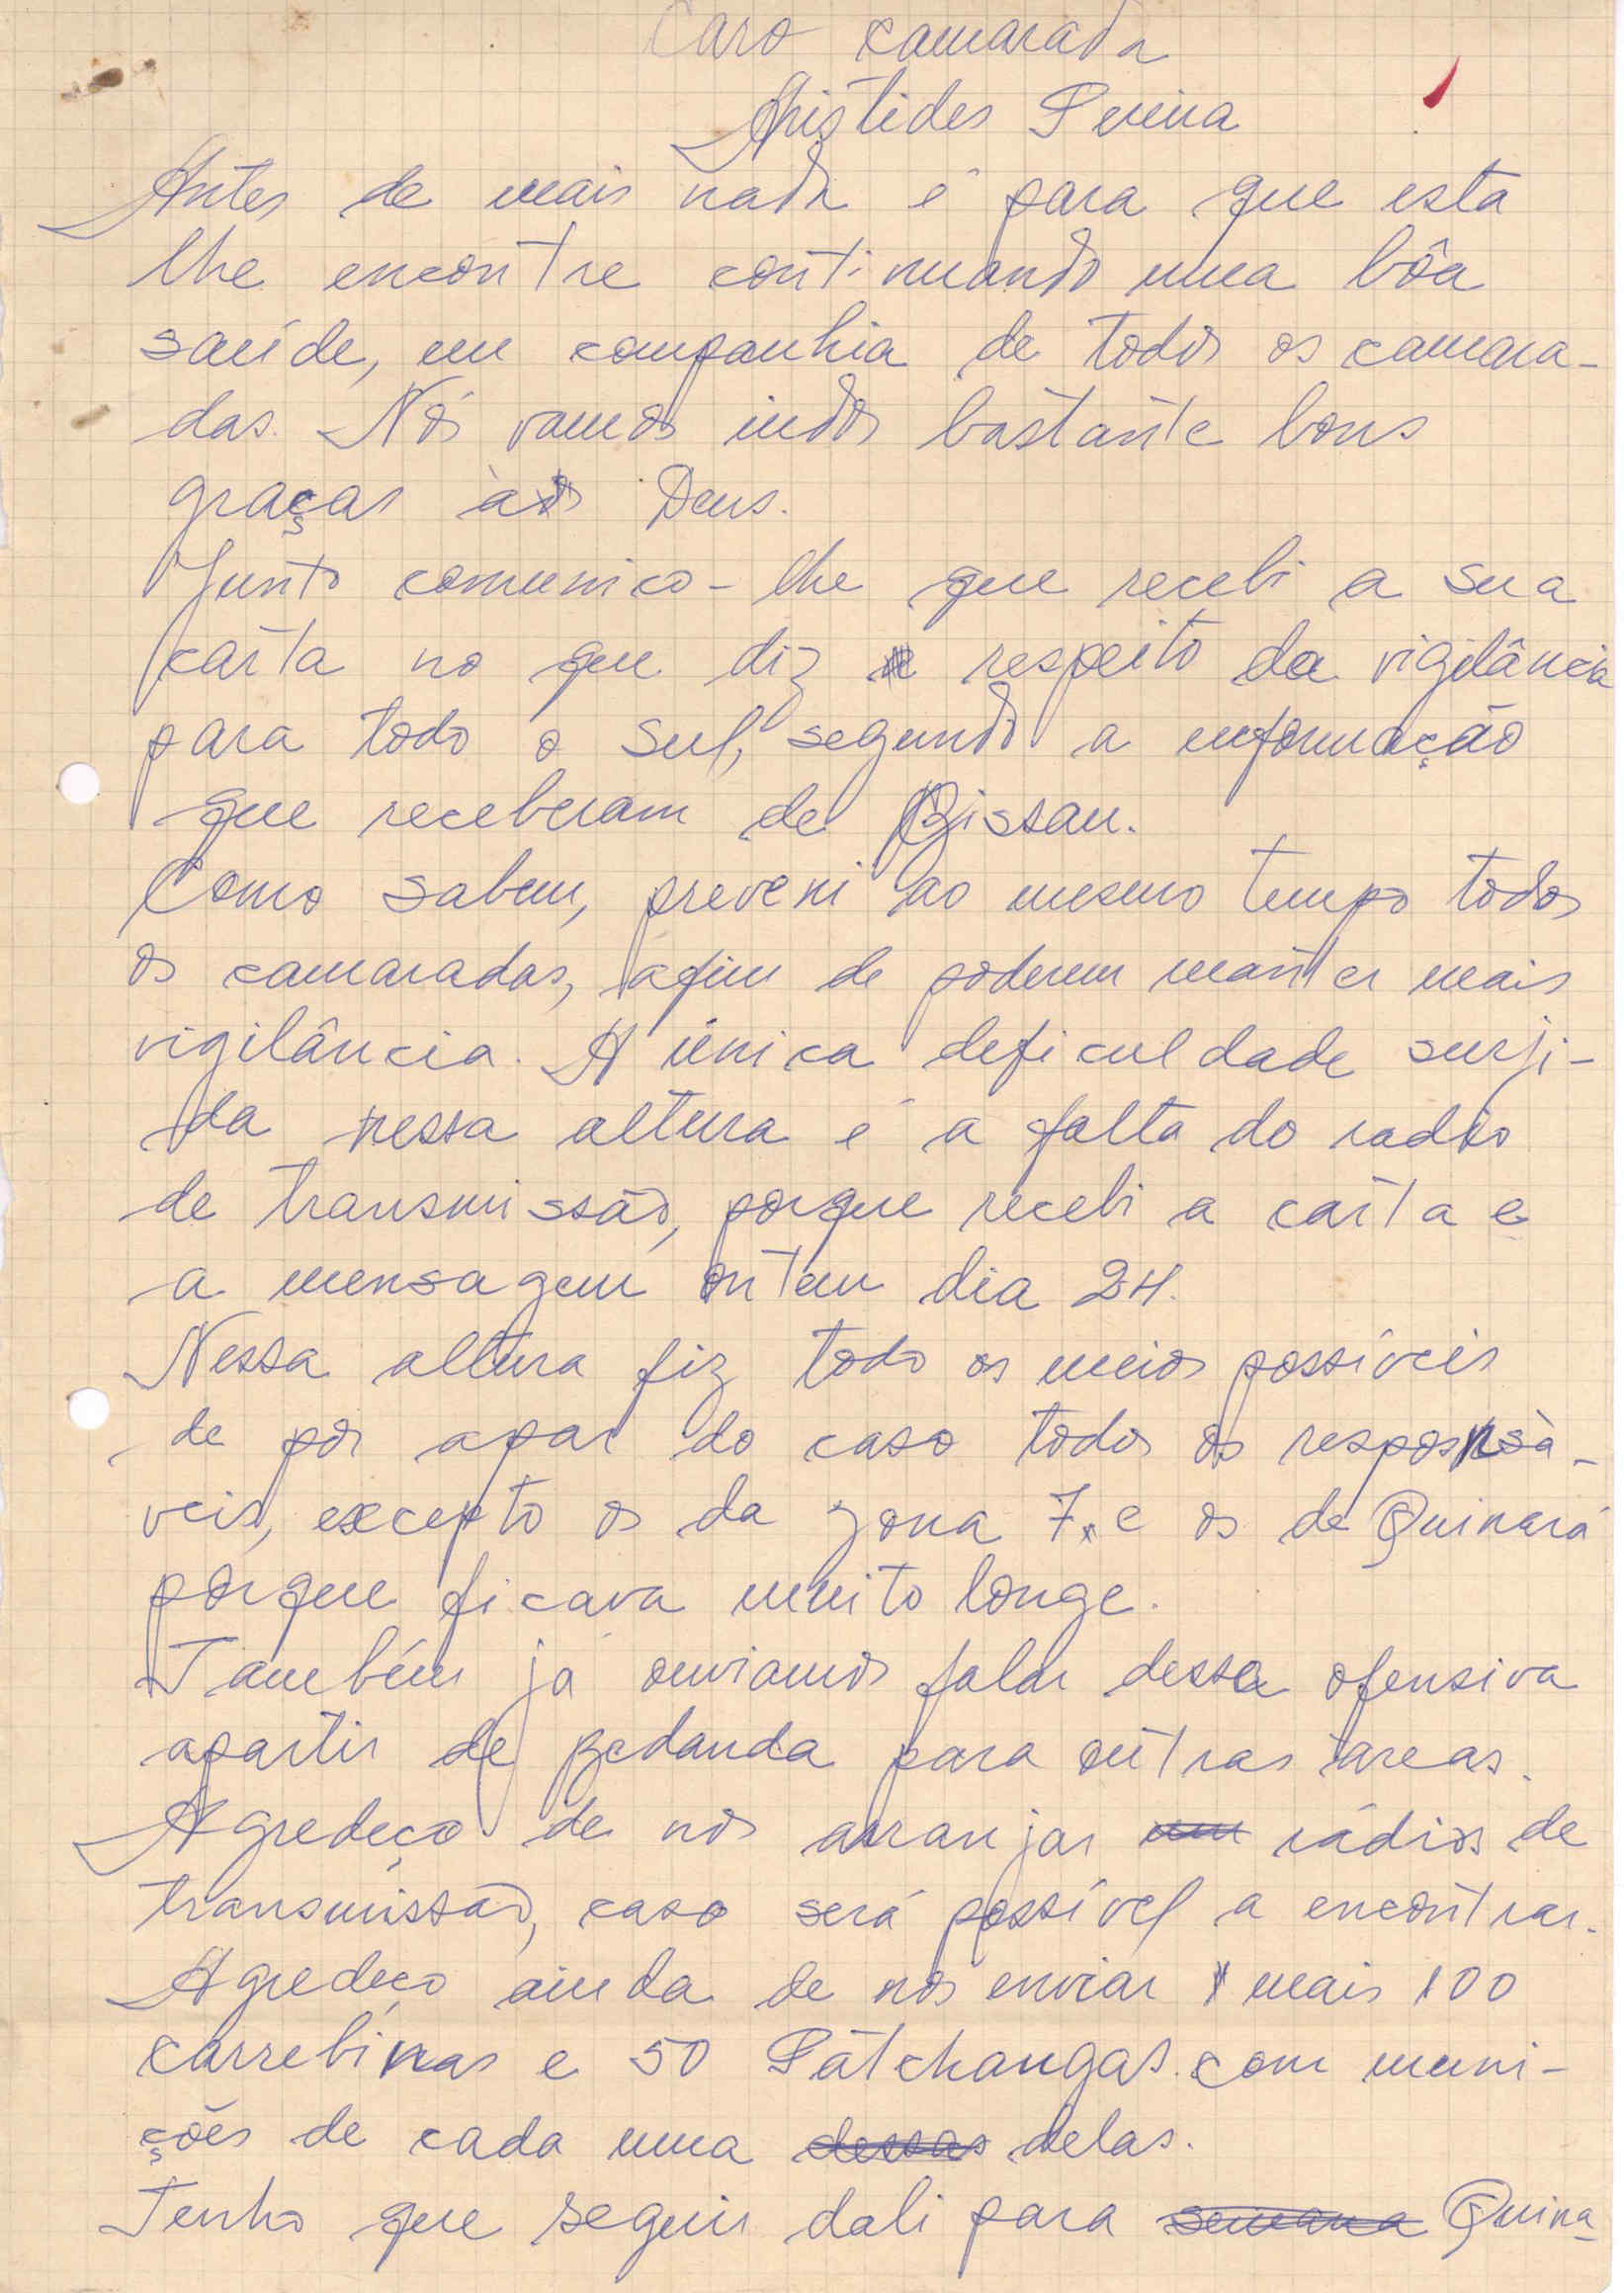 Caro camarada
Aristides Pereira
Antes de mais nada é para que esta
lhe encontre continuando uma bôa
saúde, em companhia de todos os camara-
das. Nós vamos indos bastante bons
graças àos Deus.
Junto comunico-lhe que recebi a sua
carta no que diz respeito da vigilância
para todo o sul, segundo a enformação
que receberam de Bissau.
Como sabem, preveni ao mesmo tempo todos
os camaradas, afim de poderem manter mais
vigilância. A única deficuldade surji-
da nessa altura é a falta do radio
de transmissão, porque recebi a carta e
a mensagem ontem dia 24.
Nessa altura fiz todo os meios possíveis
de por apar do caso todos os responsà-
veis, excepto os da zona 7. e os de Quinará
porque ficava muito longe.
Também já ouviamos falar dessa ofensiva
apartir de Bedanda para outras areas.
Agredeço de nos arranjar um rádios de
transmissão, caso será possível a encontrar.
Agredeço ainda de nos enviar mais 100
carrebinas e 50 Patchangas com muni-
ções de cada uma dessas delas.
Tenho que seguir dali para semana Quina-